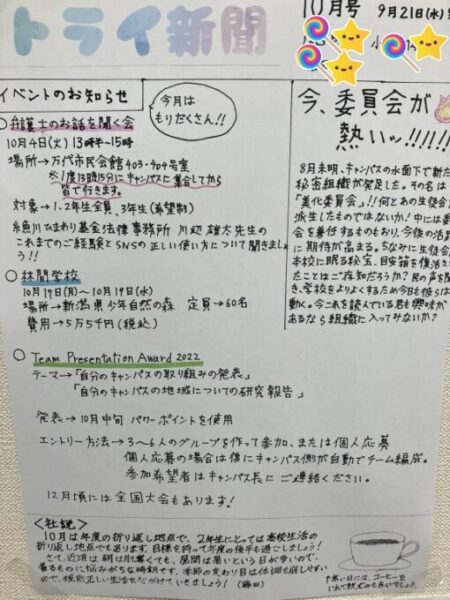 トライ新聞
10月号
9月21日(水)
イベントのお知らせ
今月は
もりだくさん!!
○弁護士のお話を聞く会
10月4日(火) 13時半~15時
場所→万代市民会館403・404号室
※1度13時15分にキャンパスに集合してから
皆で行きます。
対象→1、2年生全員、3年生(希望制)
糸魚川ひまわり基金法律事務所 川辺雄太先生の
これまでのご経験とSNSの正しい使い方について聞きましょ
う!!
○林間学校
10月19日(月)~10月19日(水)
場所→新潟県少年自然の森 定員→60名
費用→5万5千円(税込)
今、委員会が
熱いッ!!!!!!
8月未明、キャンパスの水面下で新た
秘密組織が発足した。その名は
「美化委員会」!!何とあの生徒会
派生したものではないか!中には委
会を兼任するものもおり、今後の活
に期待が高まる。ちなみに生徒会
本校に眠る秘宝、目安箱を復活さ
たことはご存知だろうか?民の声を聞
き、学校をよりよくするため今日も彼らは
動く。今これを読んでいる君も興味が
あるなら組織に入ってみないか?
○Team Presentation Award 2022
テーマ→「自分のキャンパスの取り組みの発表」
「自分のキャンパスの地域についての研究報告」
発表→10月中旬 パワーポイントを使用
エントリー方法→3~6人のグループを作って参加、または個人応募
個人応募の場合は後にキャンパス側が自動でチーム編成。
参加希望者はキャンパス長にご連絡ください。
12月頃には全国大会もあります!
<社説>
10月は年度の折り返し地点で、2年生にとっては高校生活の
折り返し地点でもあります。目標を持って年度の後半も過ごしましょう!
さて、近頃は朝は肌寒くても、昼間は暑いという日が多いので、
着るものに悩みがちな時期です。季節の変わり目は体調も崩しやすい
ので、規則正しい生活を心がけていきましょう!(梅田)
↑寒い日には、コーヒーを